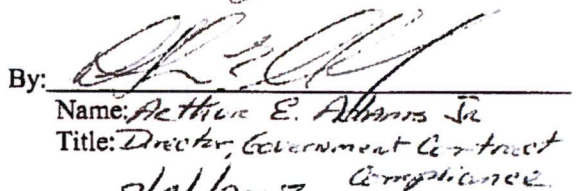 By:
Name: Arthur E. Adams Jr
Title: Director, Government Contract
Compliance